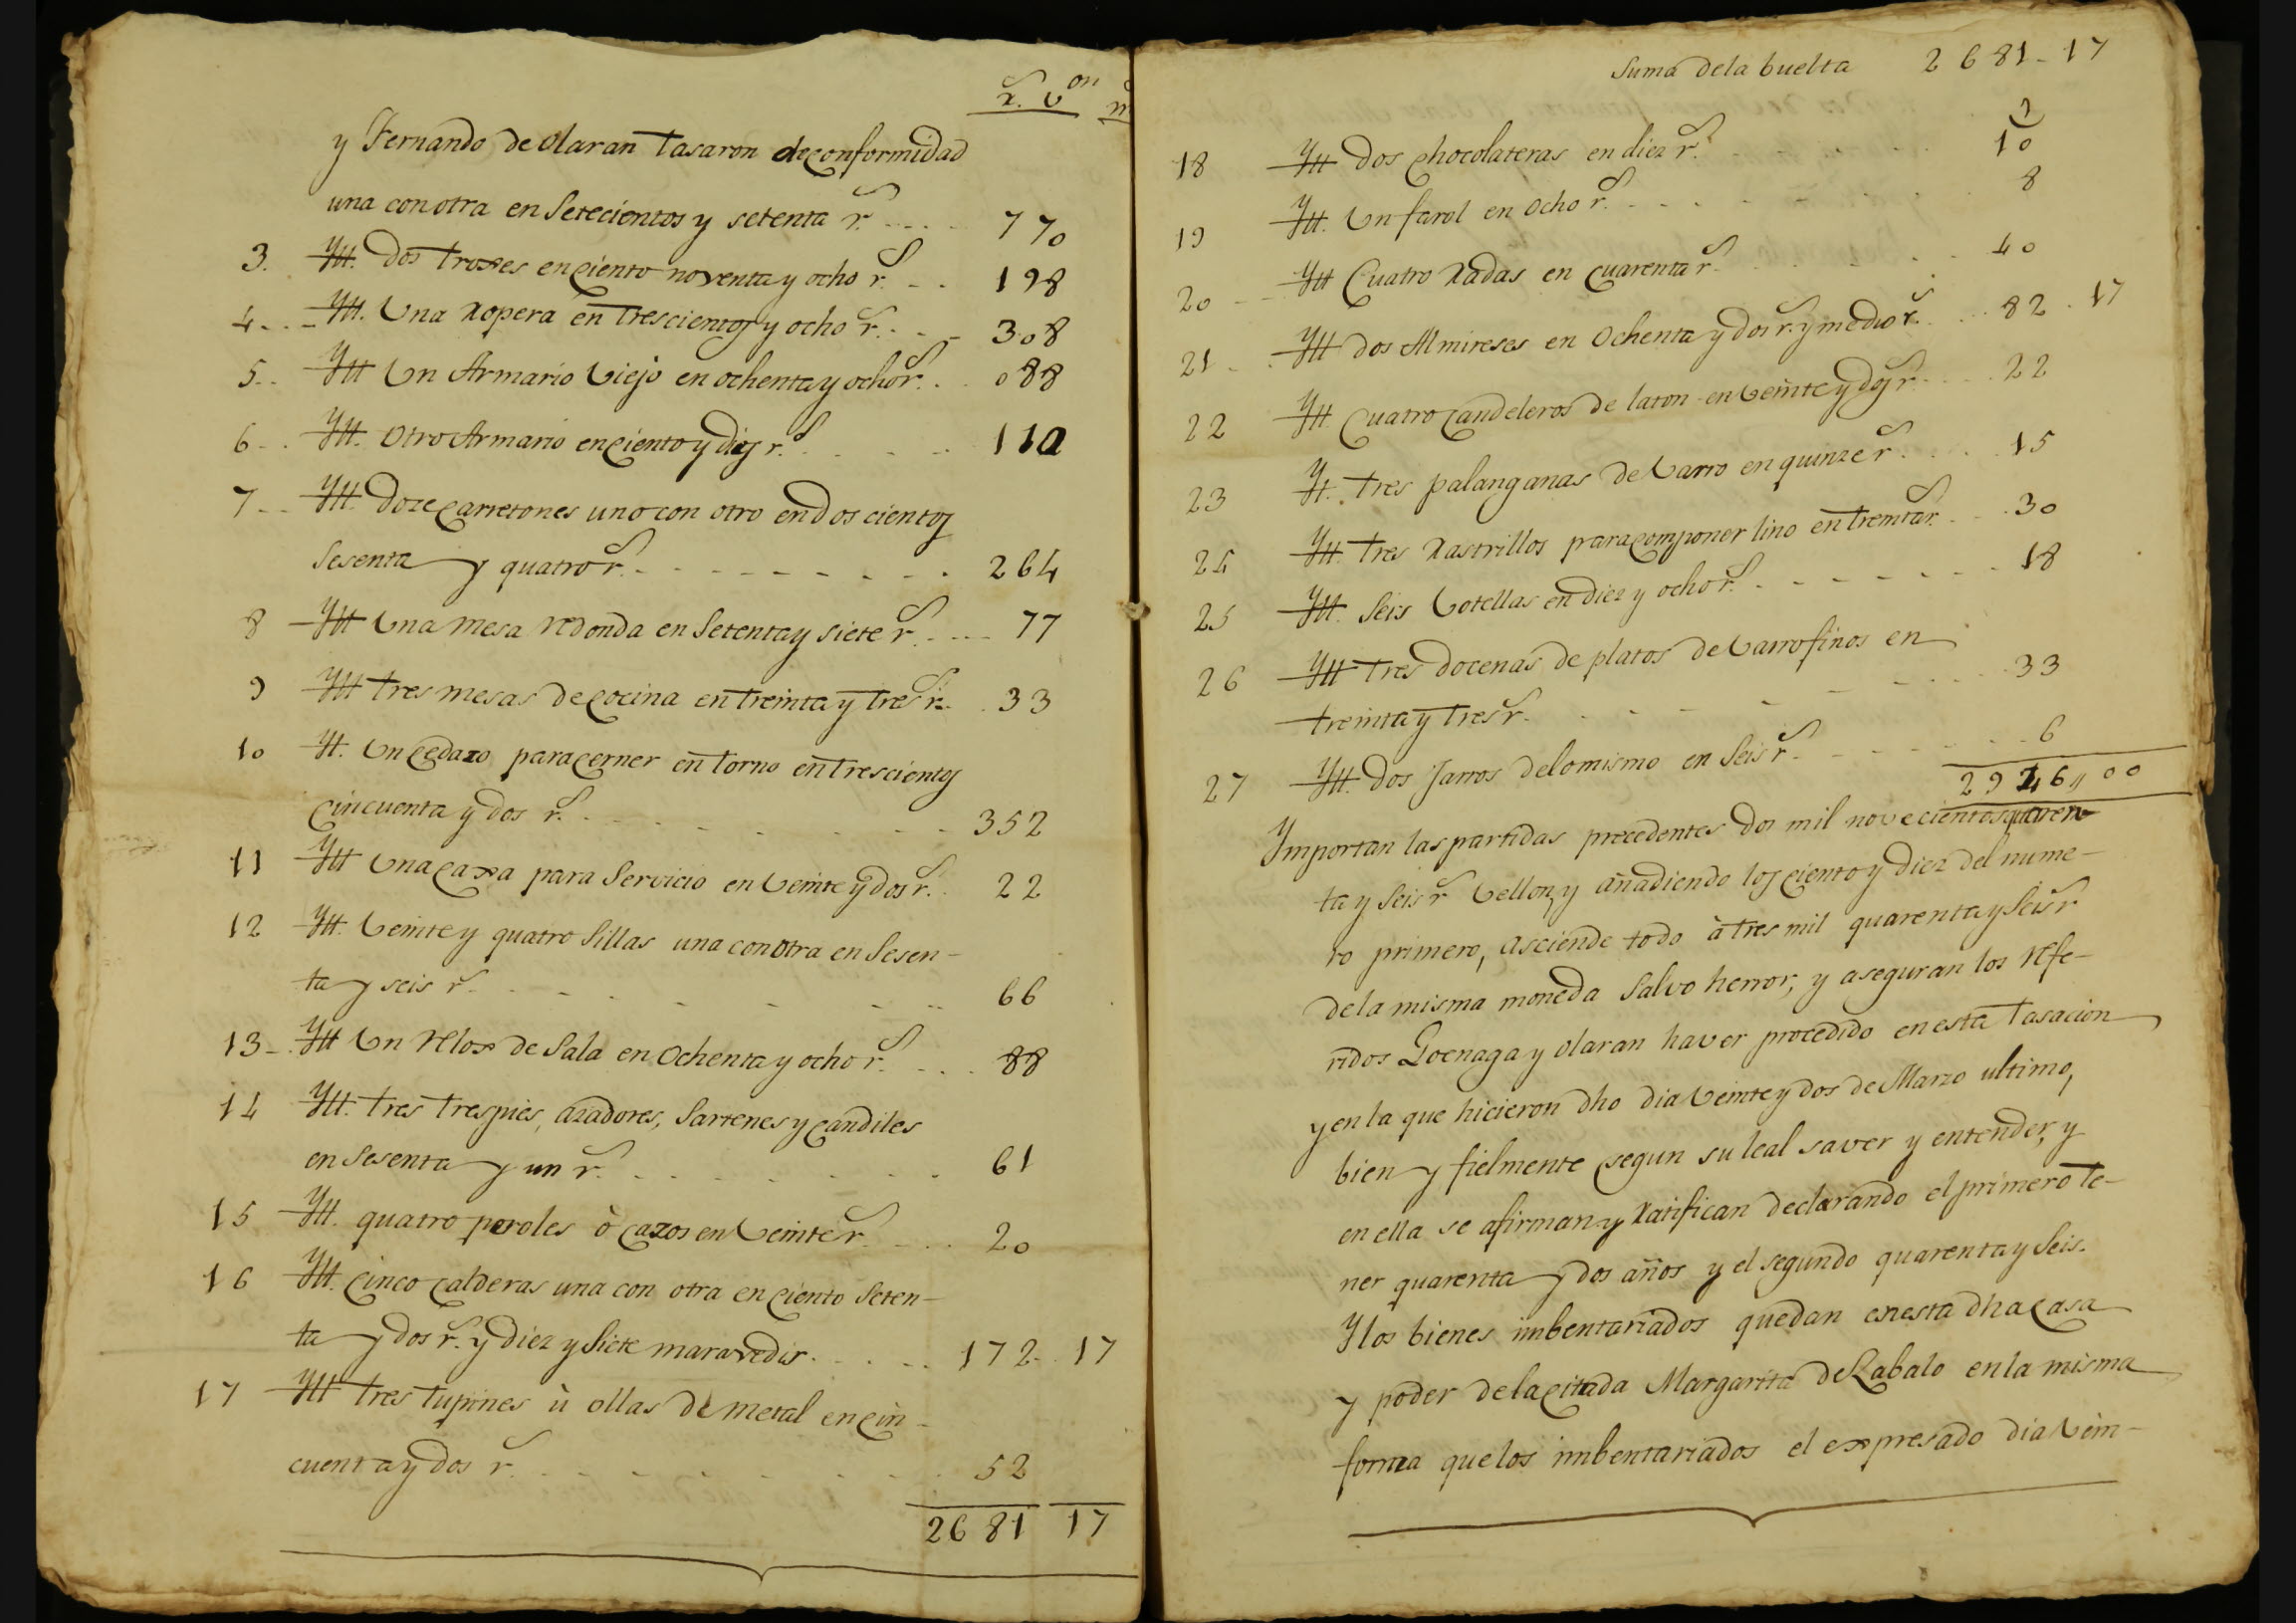 r.s v.on m
y Fernando de Olaran tasaron de conformidad
una con otra en Setecientos y setenta r.s .... 770
3. Ytt. dos troxes en ciento noventa y ocho r.s .. 198
4.. Ytt. Una Ropera en trescientos y ocho r.s .. 308
5.. Ytt Un Armario Viejo en ochenta y ocho r.s . 088
6.. Ytt. Otro Armario en ciento y diez r.s ..... 110
7.. Ytt. doze carretones uno con otro en dos cientos
Sesenta y quatro r.s ......... 264
8 Ytt Una mesa redonda en Setenta y siete r.s .... 77
9 Ytt tres mesas de cocina en treinta y tres r.s . 33
10 Yt. Un cedazo para cerner en torno en trescientos
cincuenta y dos r.s ........ 352
11 Ytt Una caxa para Servicio en Veinte y dos r.s . 22
12 Ytt. Veinte y quatro Sillas una con otra en Sesen-
ta y seis r.s ....... 66
13.. Ytt Un Relox de Sala en Ochenta y ocho r.s ... 88
14 Ytt. tres trespies, azadores, Sartenes y candiles
en Sesenta y un r.s ....... 61
15 Ytt. quatro peroles ò cazos en Veinte r.s .... 20
16 Ytt. Cinco Calderas una con otra en ciento Seten-
ta y dos r.s y diez y Siete maravedis ..... 172.. 17
17 Ytt tres tupines ù ollas de metal en cin-
cuenta y dos r.s ........ 52
2681 17
Suma de la buelta 2681-17
18 Ytt dos Chocolateras en diez r.s 10
19 Ytt. Un farol en Ocho r.s ..... 8
20 Ytt Cuatro Xadas en cuarenta r.s ..... 40
21.. Ytt dos Almireses en Ochenta y dos r.s y medio r.s ... 82 . 17
22 Ytt. Cuatro Candeleros de laton en Veinte y dos r.s ..... 22
23 Yt. tres palanganas de Varro en quinze r.s .... 15
24 Ytt. tres Rastrillos para componer lino en treinta r.s ... 30
25 Ytt. Seis Votellas en diez y ocho r.s ........ 18
26 Ytt tres docenas de platos de Varro finos en
treinta y tres r.s ........ 33
27 Ytt. dos Jarros de lo mismo en Seis r.s ...... 6
2946,, 00
Ymportan las partidas precedentes dos mil novecientos quaren
ta y Seis r.s Vellon, y añadiendo los ciento y diez del nume-
ro primero, asciende todo à tres mil quarenta y Seis r.s
de la misma moneda Salvo herror; y aseguran los refe-
ridos Goenaga y Olaran haver procedido en esta tasacion
y en la que hicieron dho dia Veinte y dos de Marzo ultimo,
bien y fielmente segun su leal saver y entender, y
en ella se afirman y Ratifican declarando el primero te-
ner quarenta y dos años y el segundo quarenta y Seis.
Y los bienes imbentariados quedan en esta dha casa
y poder de la citada Margarita de Rabalo en la misma
forma que los imbentariados el expresado dia Vein-